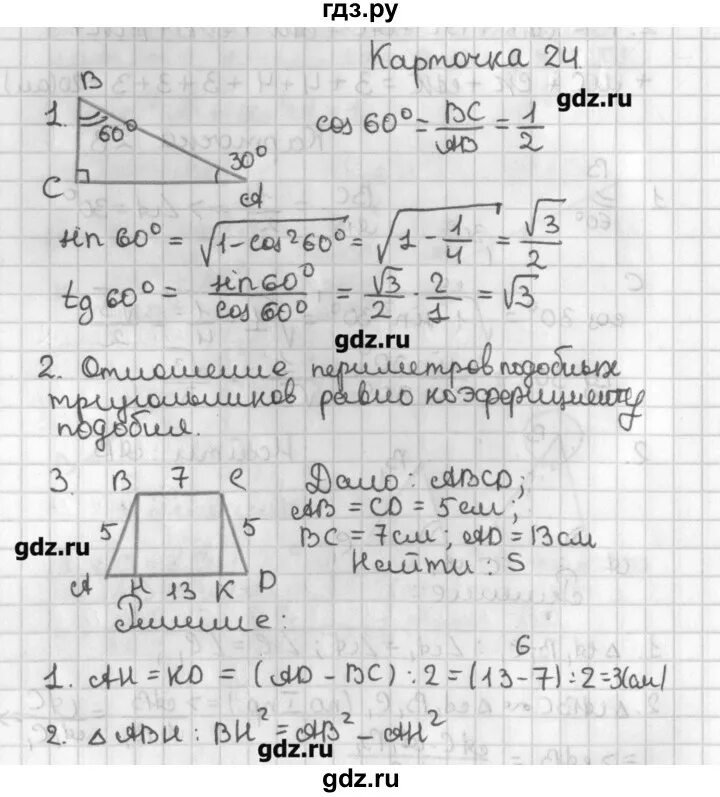 гдз.ру
Карточка 24
gdz.ru
1.
B
60°
30°
C
A
cos 60° = BC/AB = 1/2
sin 60° = √(1 - cos²60°) = √(1 - 1/4) = √3/2
tg 60° = sin60°/cos60° = √3/2 · 2/1 = √3
gdz.ru
2. Отношение периметров подобных
треугольников равно коэффициенту
подобия.
3.
B 7 C
5 5
A H 13 K D
gdz.ru
Дано: ABCD;
AB = CD = 5см;
BC = 7см; AD = 13см
Найти: S
Решение:
6
1. AH = KD = (AD - BC) : 2 = (13-7) : 2 = 3(см)
2. △ ABH : BH² = AB² - AH²
gdz.ru
gdz.ru